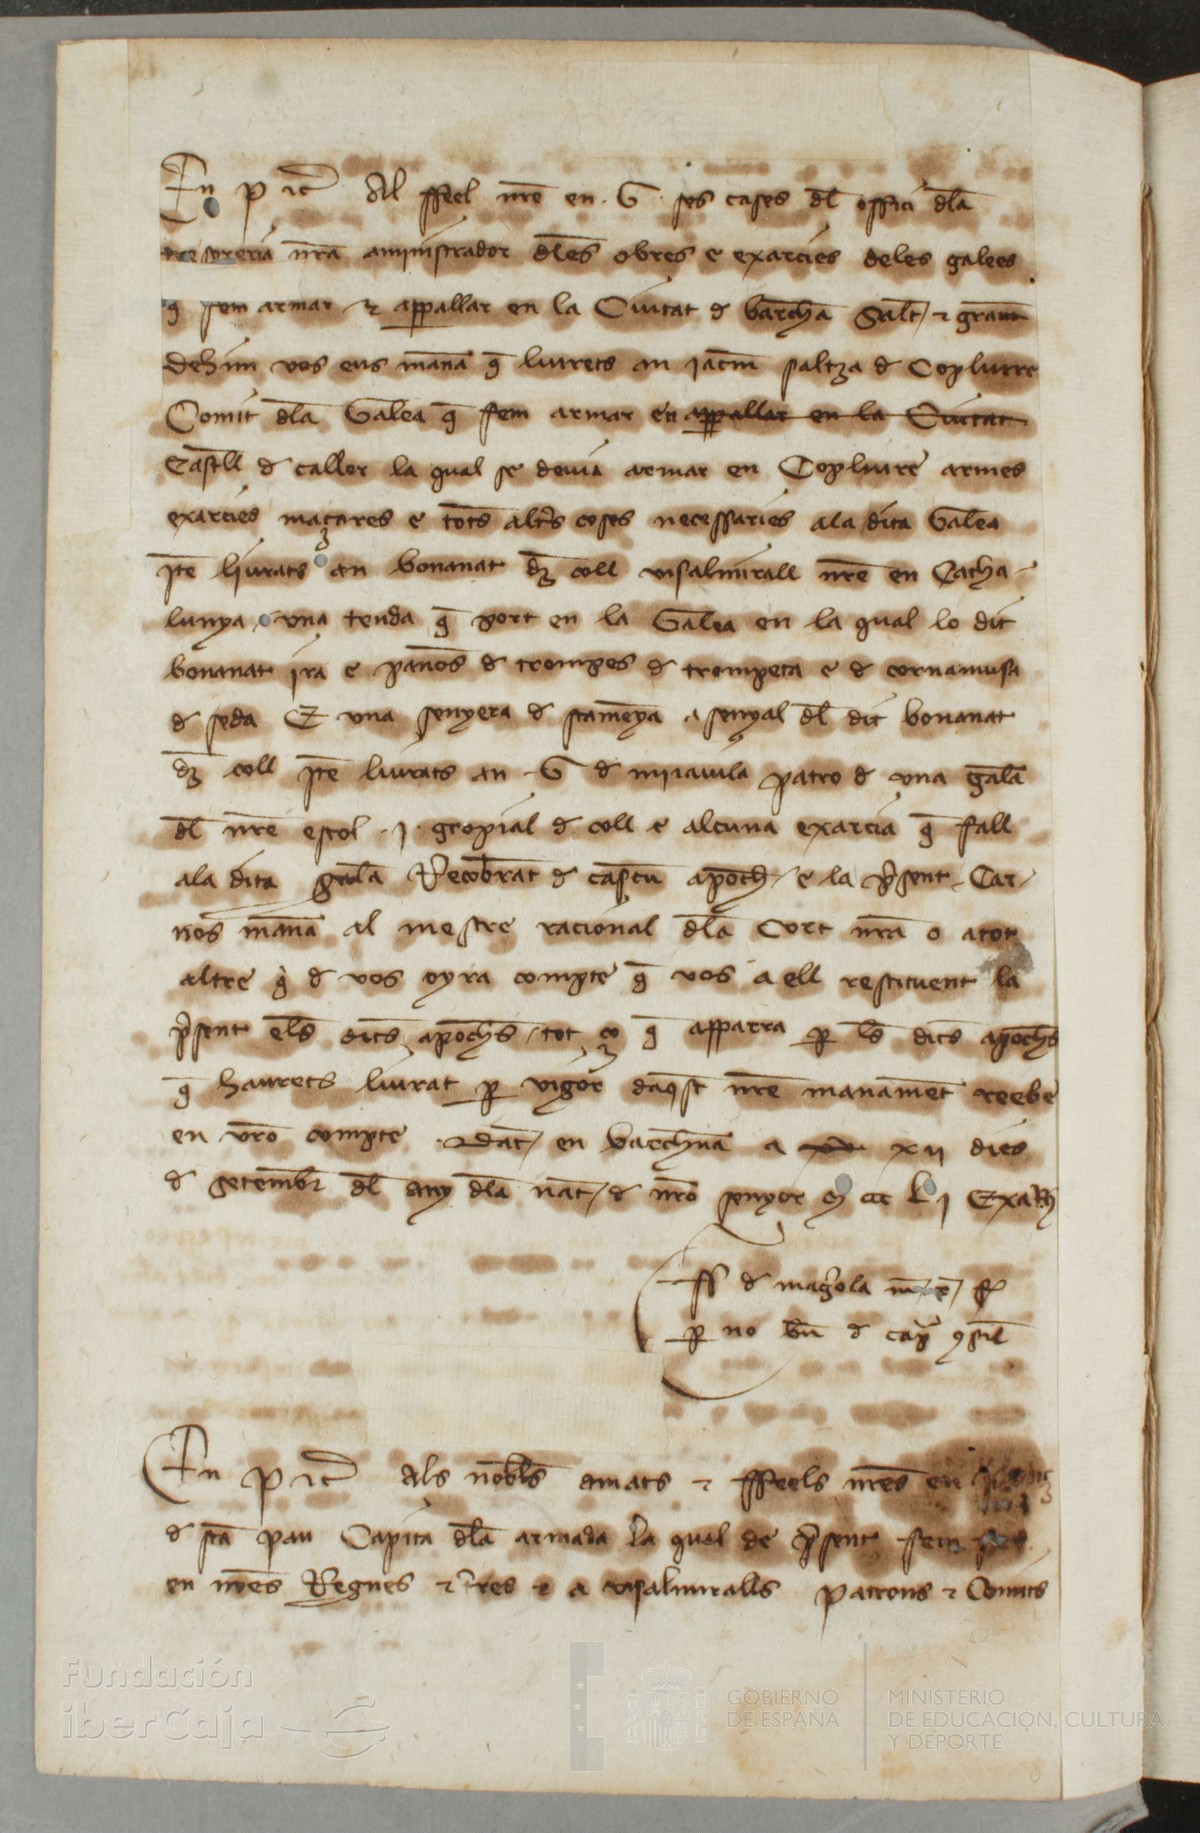 En p etc̃ Al ffeel nr̃e en · G · ses cases dl̃ offici dl̃a
tresoreria nr̃a aministrador dl̃es obres e exarcies deles galees
q̃ fem armar ⁊ appallar en la Ciutat d barchã Salt̃ ⁊ grãm
dehim vos eus manã q̃ liurets an iacm̃ saltza d Copliure
Comit dl̃a Galea q̃ fem armar en appallar en la Ciutat
Castll d caller la qual se devia armar en Copliure armes
exarcies maçares e totes altr̃s coses necessaries ala dita Galea
Itẽ liurats an bonanat dez coll visalmirall nr̃e en Catha-
lunya una tenda q̃ port en la Galea en la qual lo dit
bonanat ira e panõs d trompes d trompeta e d cornamusa
d seda E una senyera d stamenya a senyal dl̃ dit bonanat
dez coll Itẽ liurats an · G d miravila patro d una galea
dl̃ nr̃e estol · I · gropial d coll e alcuna exarcia q̃ fall
ala dita galea Recobrat d cascũ apocħ e la p̃sent Car
nos manã al mestre racional dl̃a Cort nr̃a o atot
altre q̃ d vos oyra compte q̃ vos a ell restituent la
p̃sent els dits apochs tot ço q̃ apparra p ls̃ dits apochs
q̃ haurets liurat p vigor daq̃st nr̃e manamẽt reebe
en vrõ compte Dat̃ en barchnã a xv xii dies
d setembr̃ dl̃ any dl̃a nat̃ d nrõ senyor M ccc L i Exah̃
ff d mag̃ola
p no bñ d cap̃ ɔsil̃
En p etc̃ Als nobl̃s amats ⁊ ffeels nr̃es en
d stã pau Capita dl̃a armada la qual de p̃sent fem fer
en nr̃es Regnes ⁊ tr̃res ⁊ a visalmiralls patrons ⁊ Comits
Fundación
iberCaja
GOBIERNO
DE ESPAÑA
MINISTERIO
DE EDUCACIÓN, CULTURA
Y DEPORTE